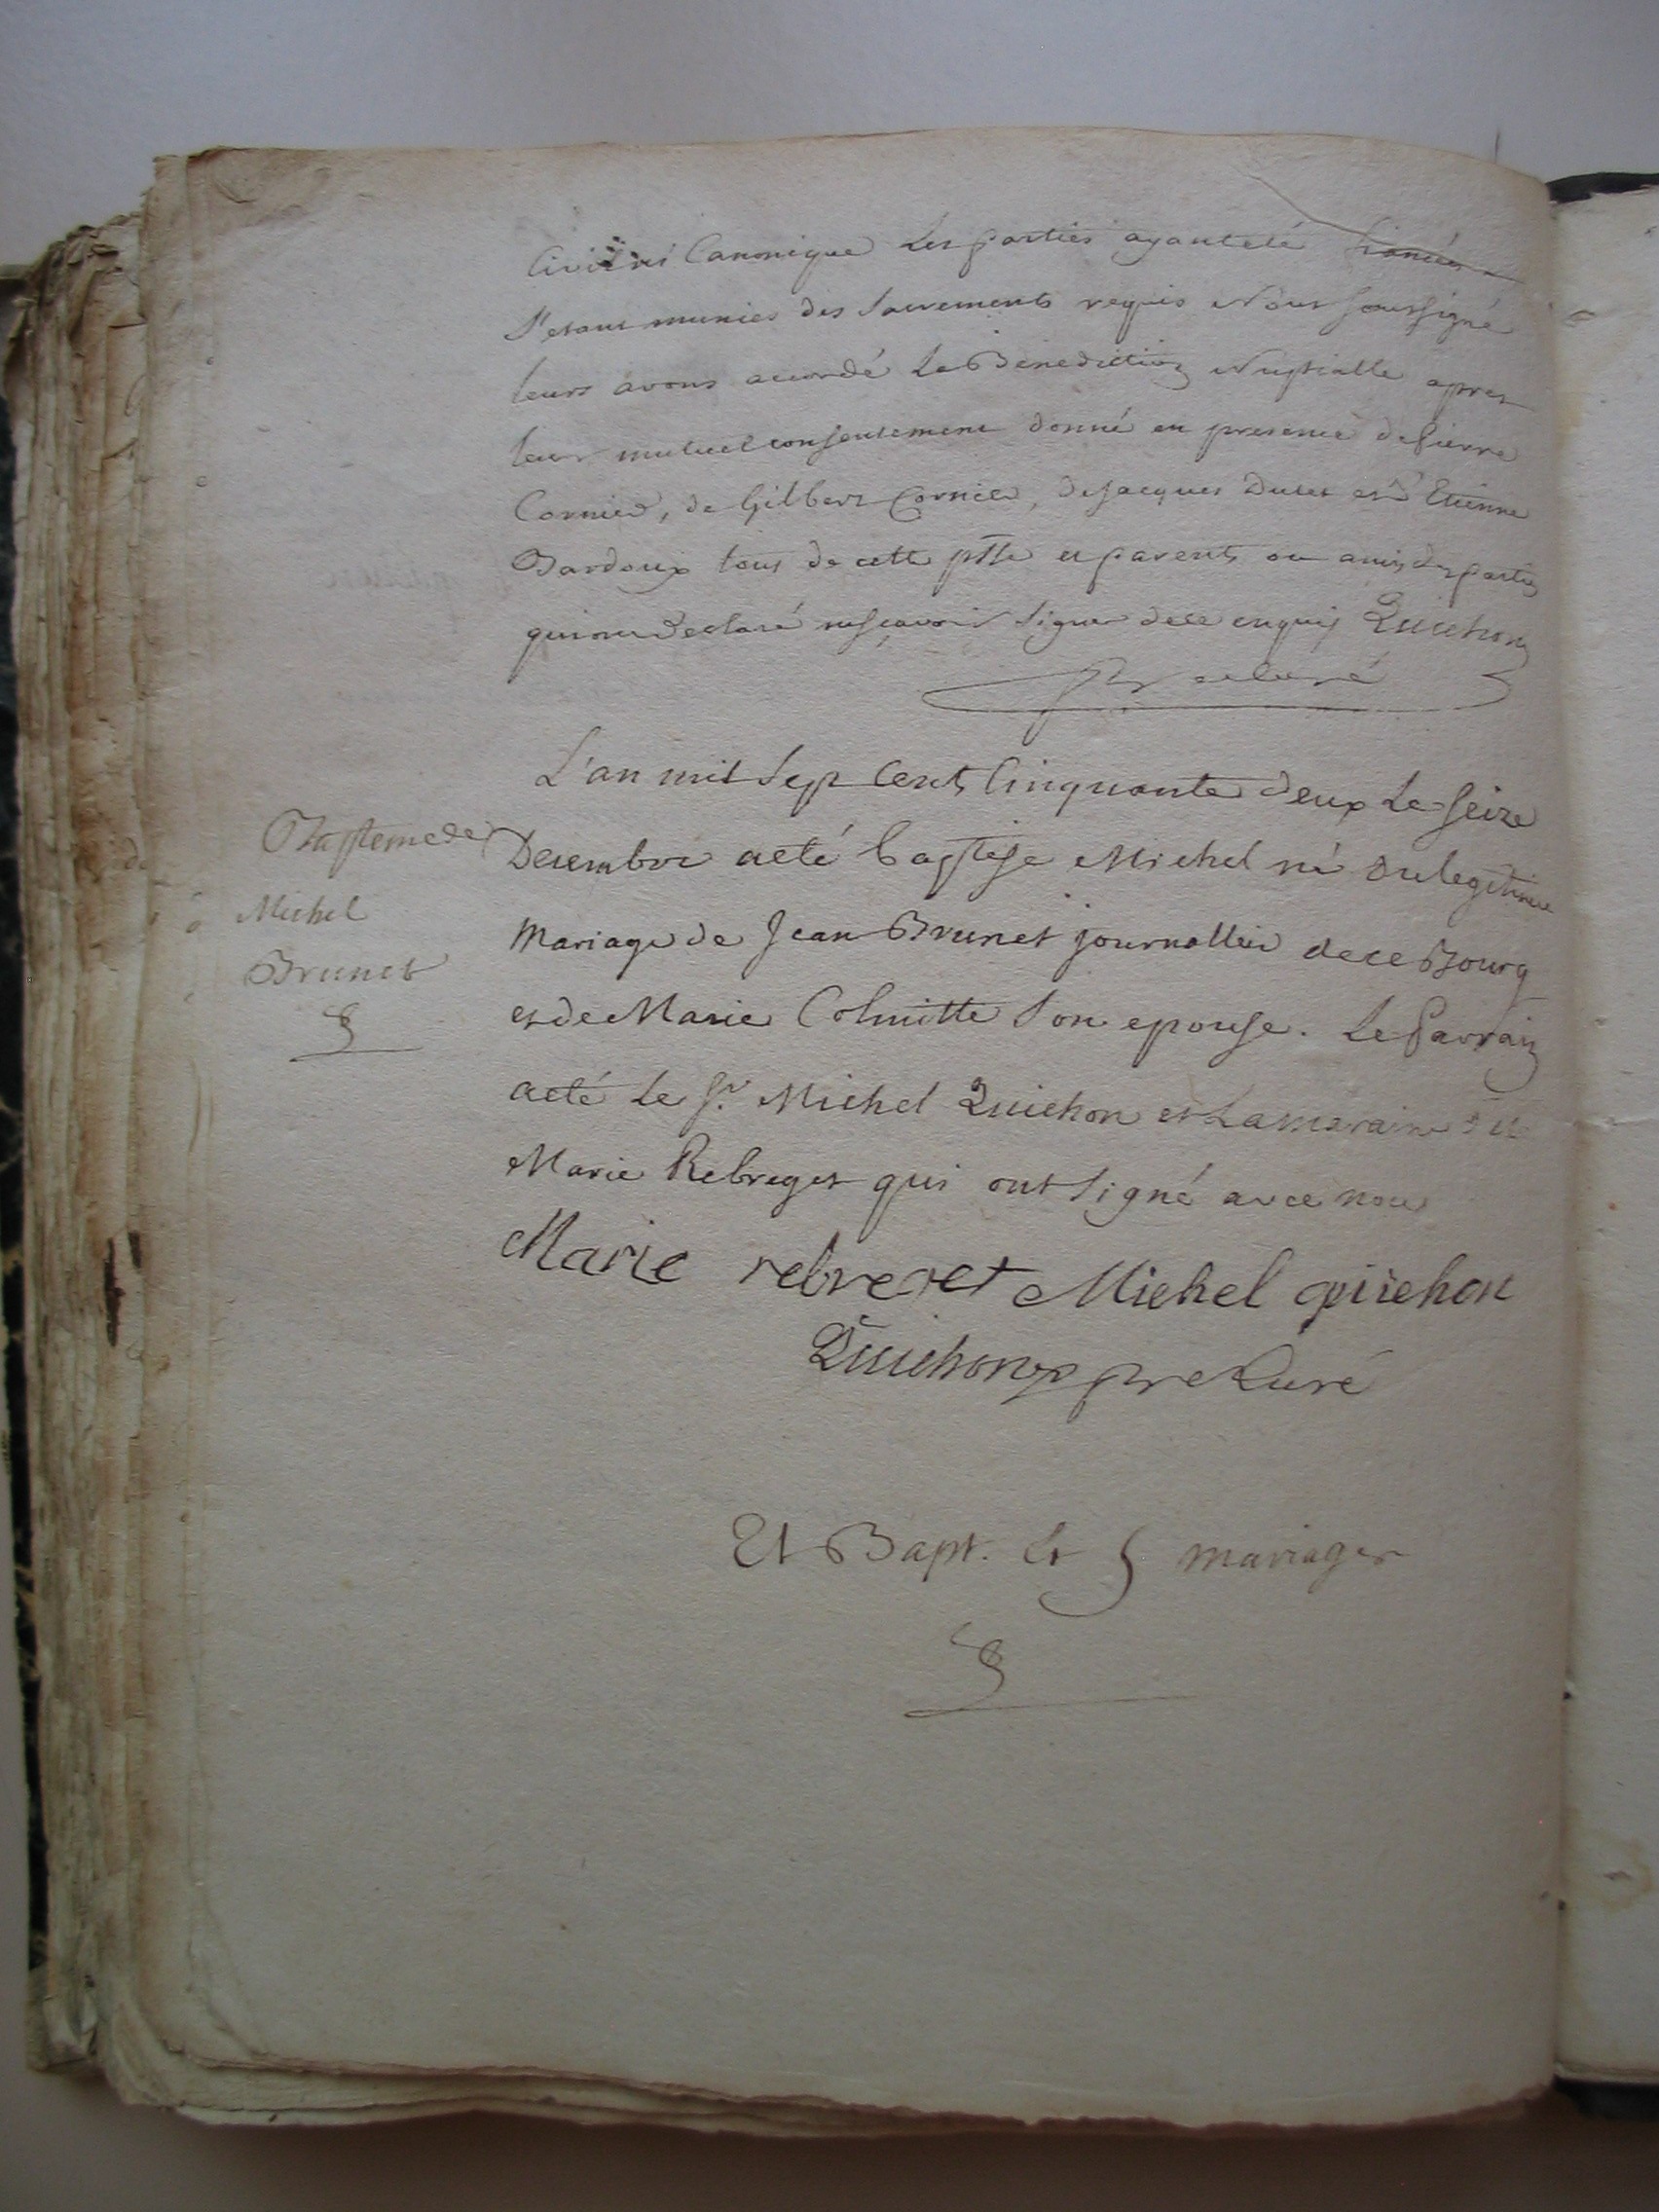 Civil ni Canonique Les parties ayant eté fiancées
S'etant munies des Sacrements requis Nous soussigné
leurs avons accordé La Benediction Nuptialle apres
leur mutuel consentement donné en presence de Pierre
Cornier, de Gilbert Cornier, de Jacques Dulet et d'Etienne
Bardoux tous de cette psse et parents ou amis des parties
qui ont declaré ne sçavoir signer de ce enquis Quichon
Pr curé
L'an mil sept Cents Cinquante deux Le seize
Bapteme de
Decembre a eté baptise Michel né du legitime
Michel
mariage de Jean Brunet journallier de ce Bourg
Brunet
et de Marie Colmitte son epouse. Le Parrain
a eté Le Sr. Michel Quichon et La maraine
Marie Rebreget qui ont signé avec nous
Marie rebreget Michel quichon
Quichon pre Curé
21 Bapt. Et 5 mariages